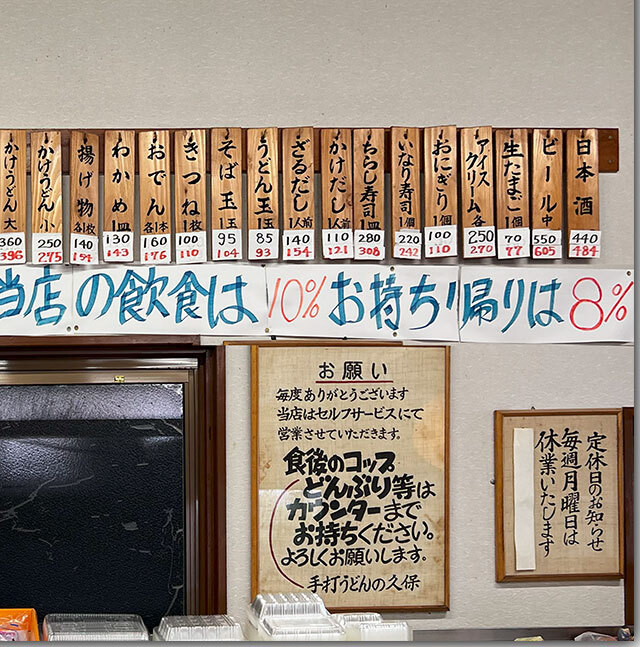 日本酒
440
484
ビール中
550
605
生たまご1個
70
77
アイスクリーム各
250
270
おにぎり1個
100
110
いなり寿司1個
220
242
ちらし寿司1皿
280
308
かけだし1人前
110
121
ざるだし1人前
140
154
うどん玉1玉
85
93
そば玉1玉
95
104
きつね1枚
100
110
おでん各1本
160
176
わかめ1皿
130
143
揚げ物各1枚
140
154
かけうどん小
250
275
かけうどん大
360
396
当店の飲食は10%お持ち帰りは8%
お願い
毎度ありがとうございます
当店はセルフサービスにて
営業させていただきます。
食後のコップ
どんぶり等は
カウンターまで
お持ちください。
よろしくお願いします。
手打うどんの久保
定休日のお知らせ
毎週月曜日は
休業いたします